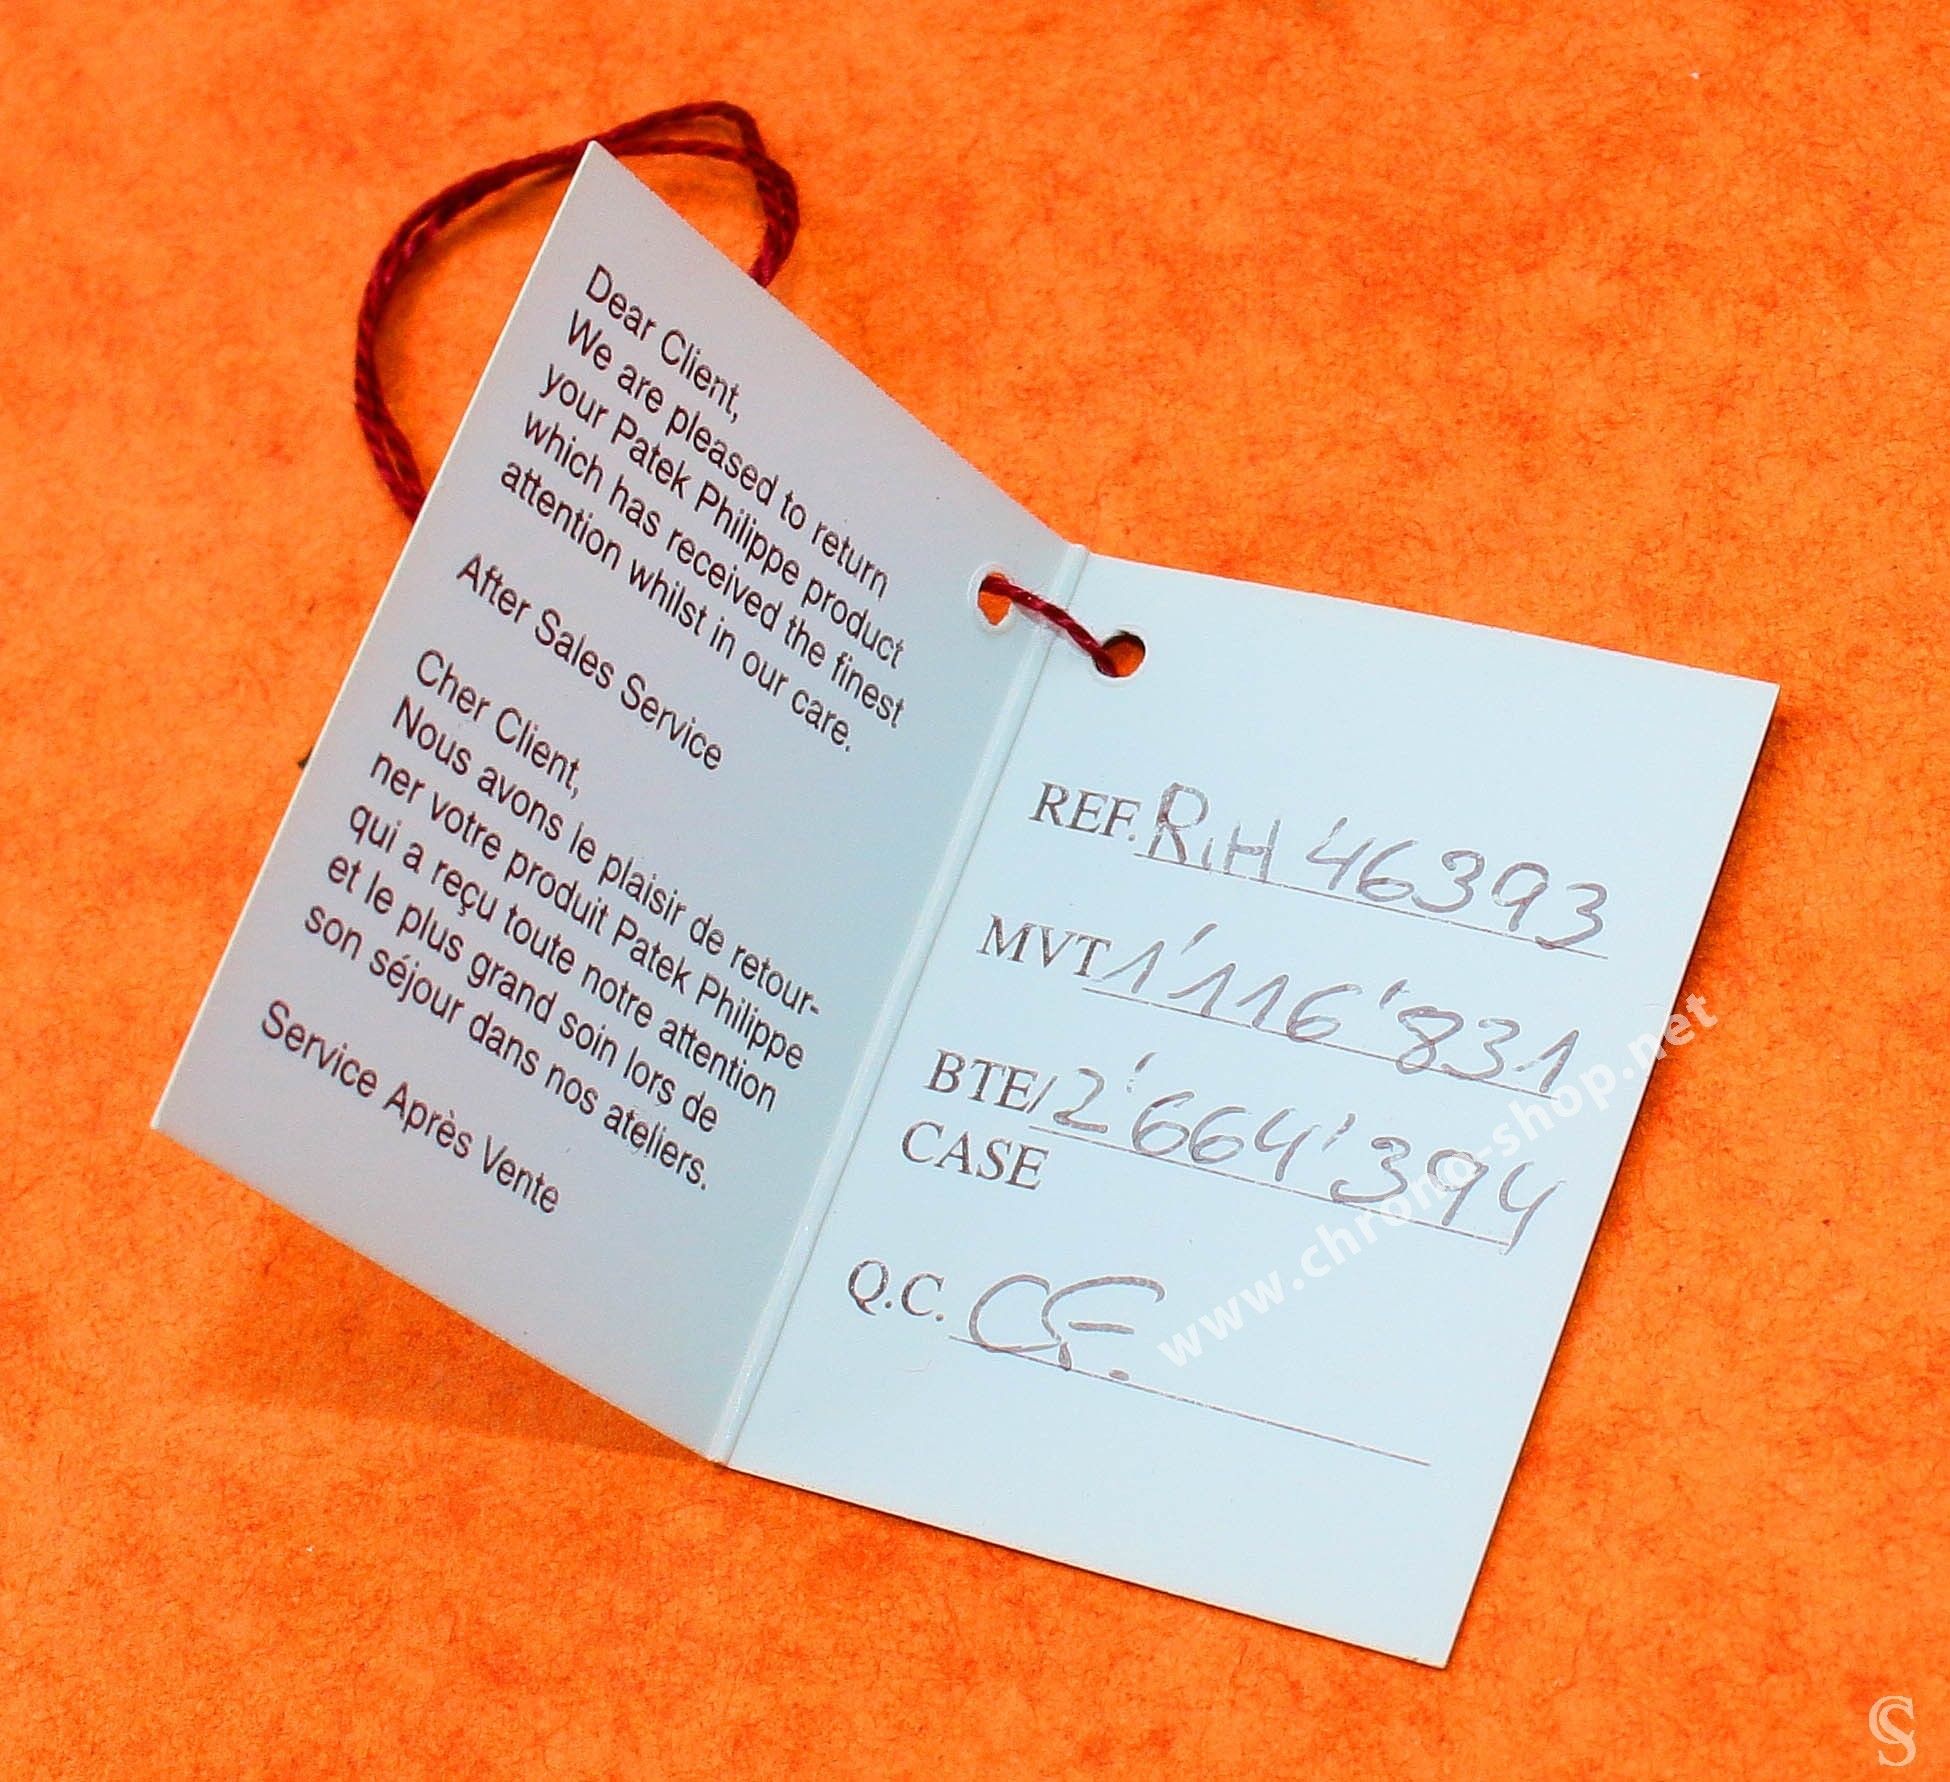 Dear Client,
We are pleased to return
your Patek Philippe product
which has received the finest
attention whilst in our care.
After Sales Service
Cher Client,
Nous avons le plaisir de retour-
ner votre produit Patek Philippe
qui a reçu toute notre attention
et le plus grand soin lors de
son séjour dans nos ateliers.
Service Après Vente
REF. R.H 46393
MVT 1'116'831
BTE/ 2'664'394
CASE
Q.C.
www.chrono-shop.net